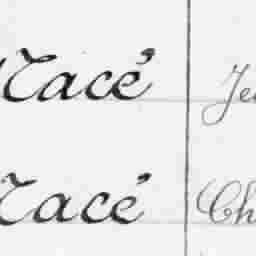 Macé Je
Macé Ch